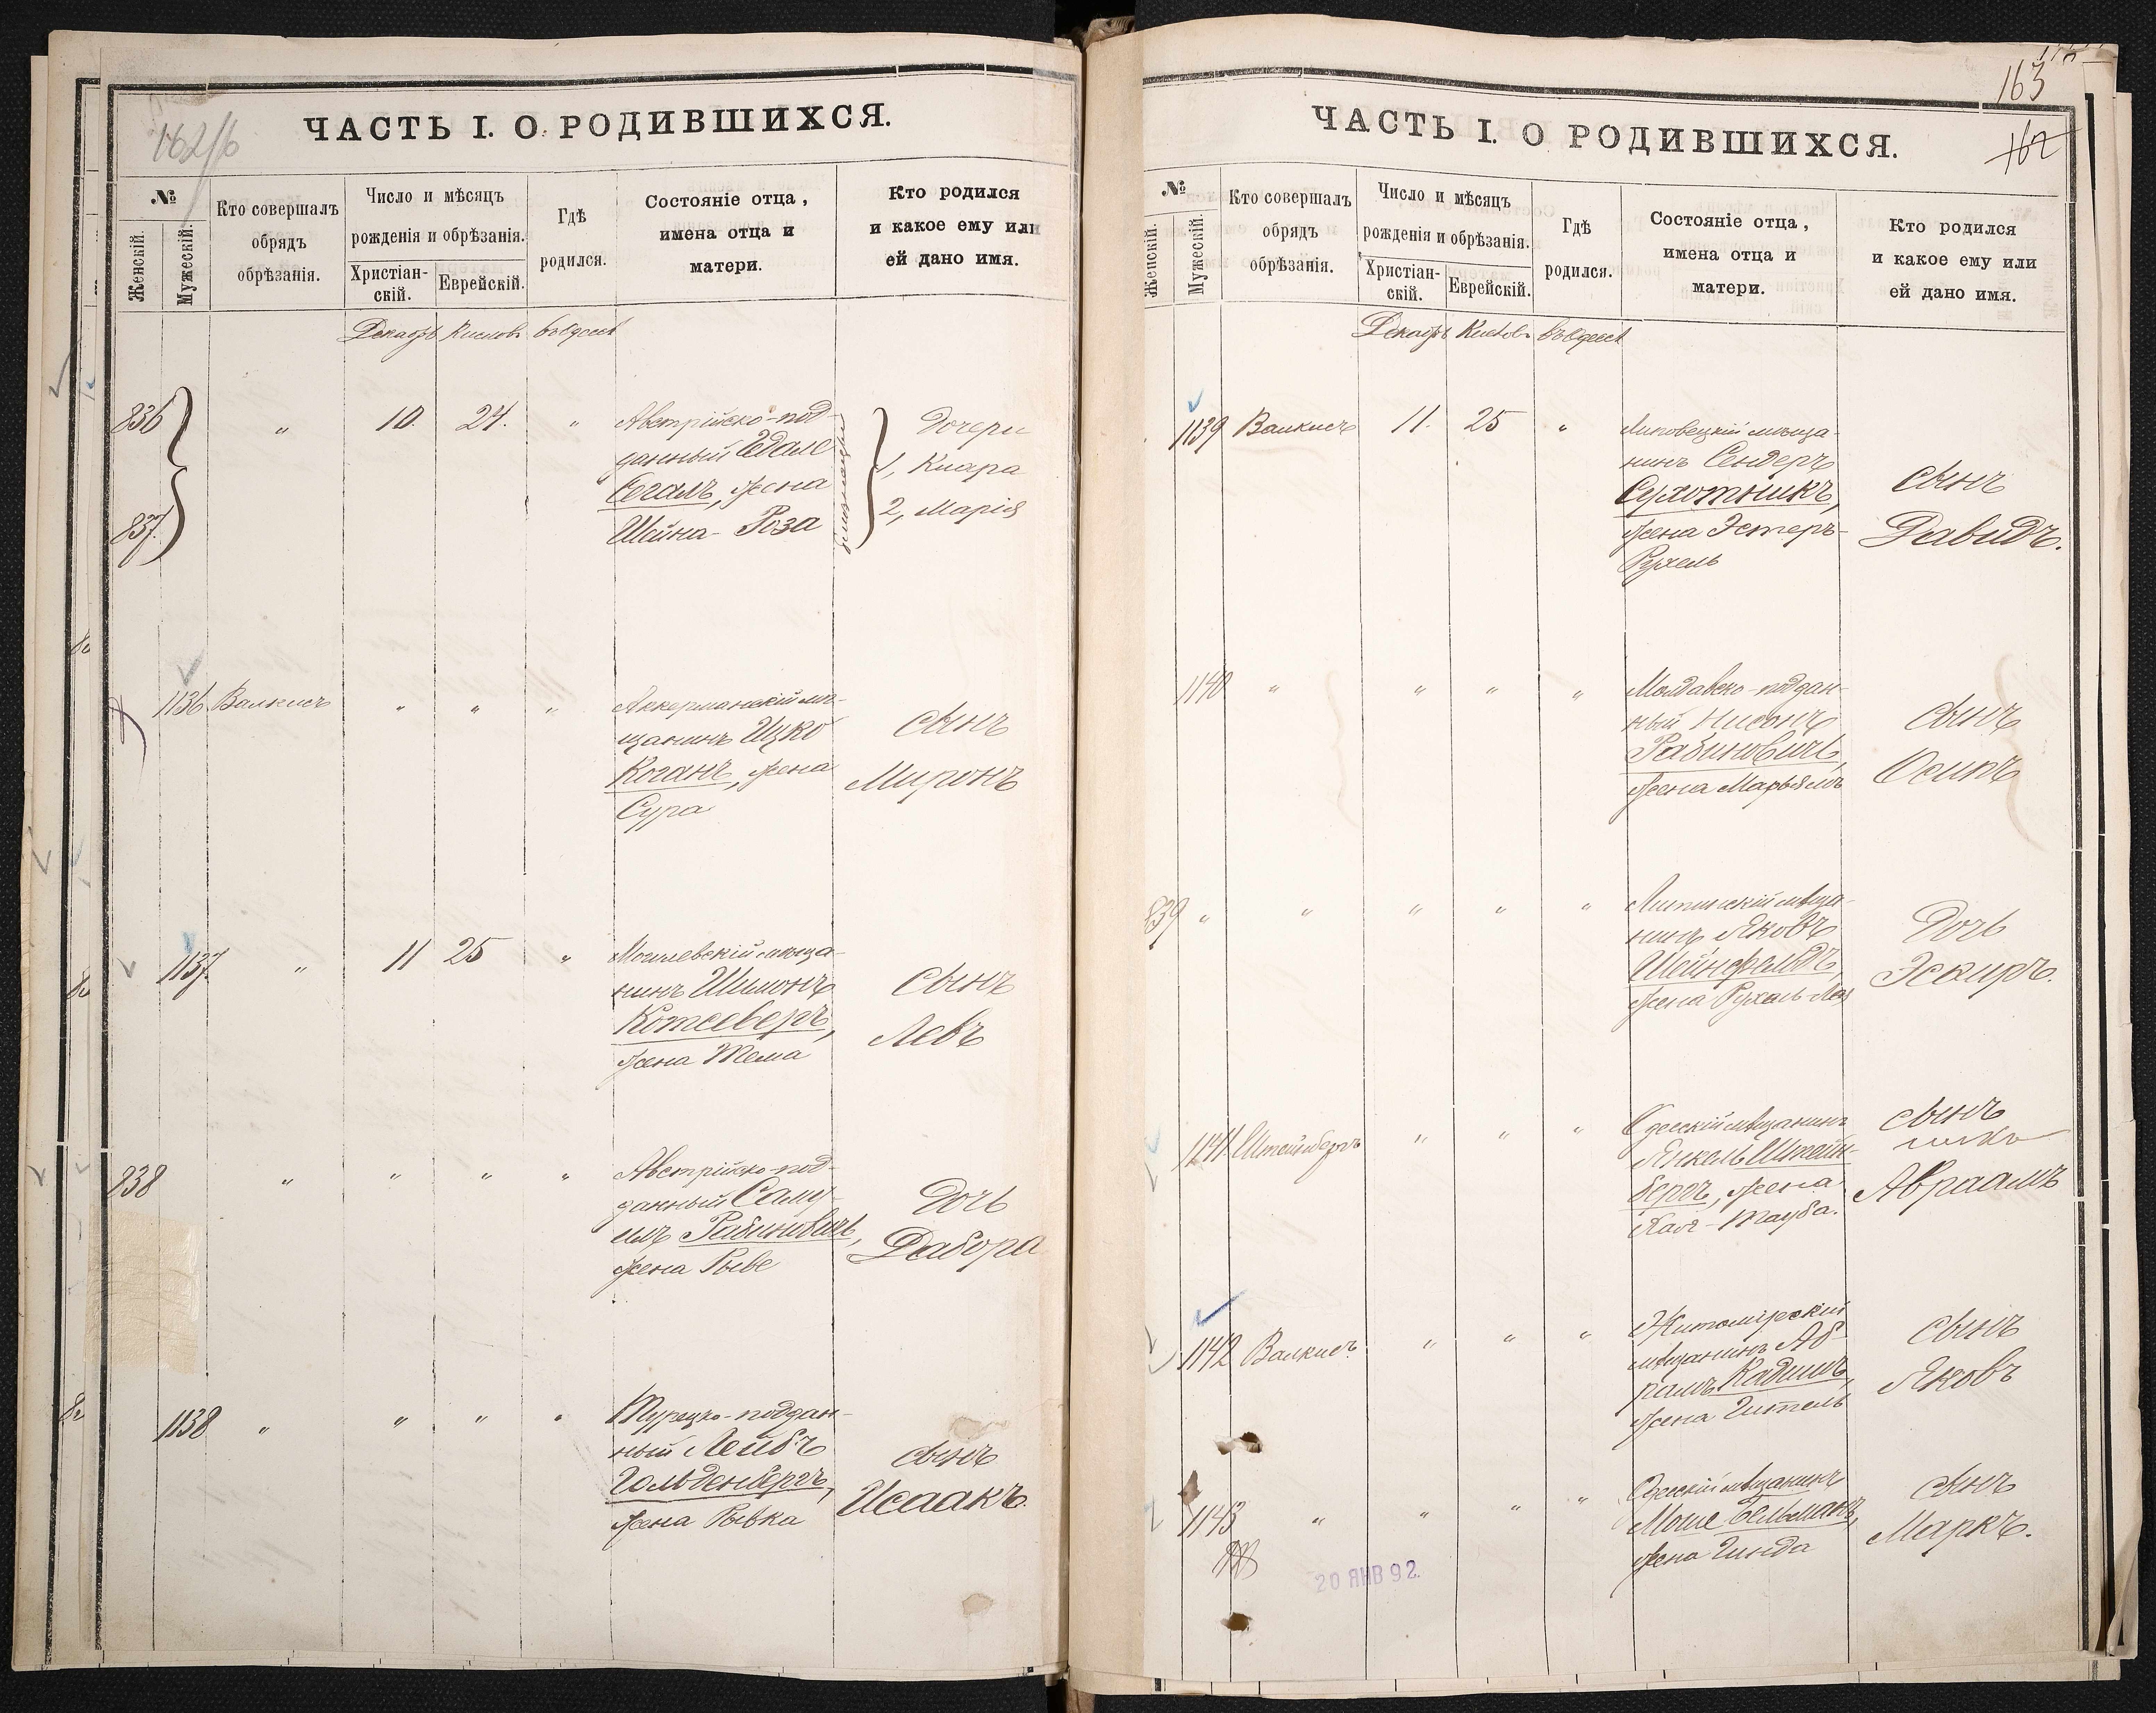 162/б
ЧАСТЬ I. О РОДИВШИХСЯ.
№
Женскій.
Мужескій.
Кто совершалъ
обрядъ
обрѣзанія.
Число и мѣсяцъ
рожденія и обрѣзанія.
Христіан-
скій.
Еврейскій.
Гдѣ
родился.
Состояніе отца,
имена отца и
матери.
Кто родился
и какое ему или
ей дано имя.
Декабрь Кислевъ въ Одессѣ
836 " 10. 24. "
837.
Австрійско-под-
данный
Сегалъ, жена
Шейна-Роза
Дочери
1, Клара
2, Марія
1136 Валкисъ " " "
Аккерманскій мѣ-
щанинъ Ицко
Коганъ, жена
Сура
сынъ
Миронъ
1137 " 11 25 "
Могилевскій мѣща-
нинъ Шимонъ
жена
Сынъ
Левъ
838 " " " "
Австрійско-под-
данный Саму-
илъ Рабиновичъ,
жена Рыве
Дочь
Дебора
1138 " " " "
Турецко-поддан-
ный Лейбъ
Гольденбергъ,
жена Рывка
сынъ
Исаакъ.
163
162
ЧАСТЬ I. О РОДИВШИХСЯ.
№
Женскій.
Мужескій.
Кто совершалъ
обрядъ
обрѣзанія.
Число и мѣсяцъ
рожденія и обрѣзанія.
Христіан-
скій.
Еврейскій.
Гдѣ
родился.
Состояніе отца,
имена отца и
матери.
Кто родился
и какое ему или
ей дано имя.
Декабрь Кислевъ въ Одессѣ
1139 Валкисъ 11. 25 "
Липовецкій мѣща-
нинъ Сендеръ
Сухотникъ,
жена Эстеръ-
Рухель
сынъ
Давидъ.
1140 " " " "
Молдавско-поддан-
ный Нисонъ
Рабиновичъ,
жена Марьямъ
сынъ
Осипъ
839 " " " " "
мѣща-
нинъ Яковъ
Шейнфельдъ,
жена Рухель-Лея
Дочь
Эсѳирь.
1141. Штейнбергъ " " "
Одесскій мѣщанинъ
Янкель Штейн-
бергъ, жена
Хая-Тауба.
сынъ
Авраамъ
1142 Валкисъ " " "
Житомирскій
мѣщанинъ Аб-
рамъ Кадишъ,
жена Гитель
сынъ
Яковъ
1143 " " " "
Одесскій мѣщанинъ
Моше Бельманъ,
жена Гинда
сынъ
Маркъ.
20 ЯНВ 92